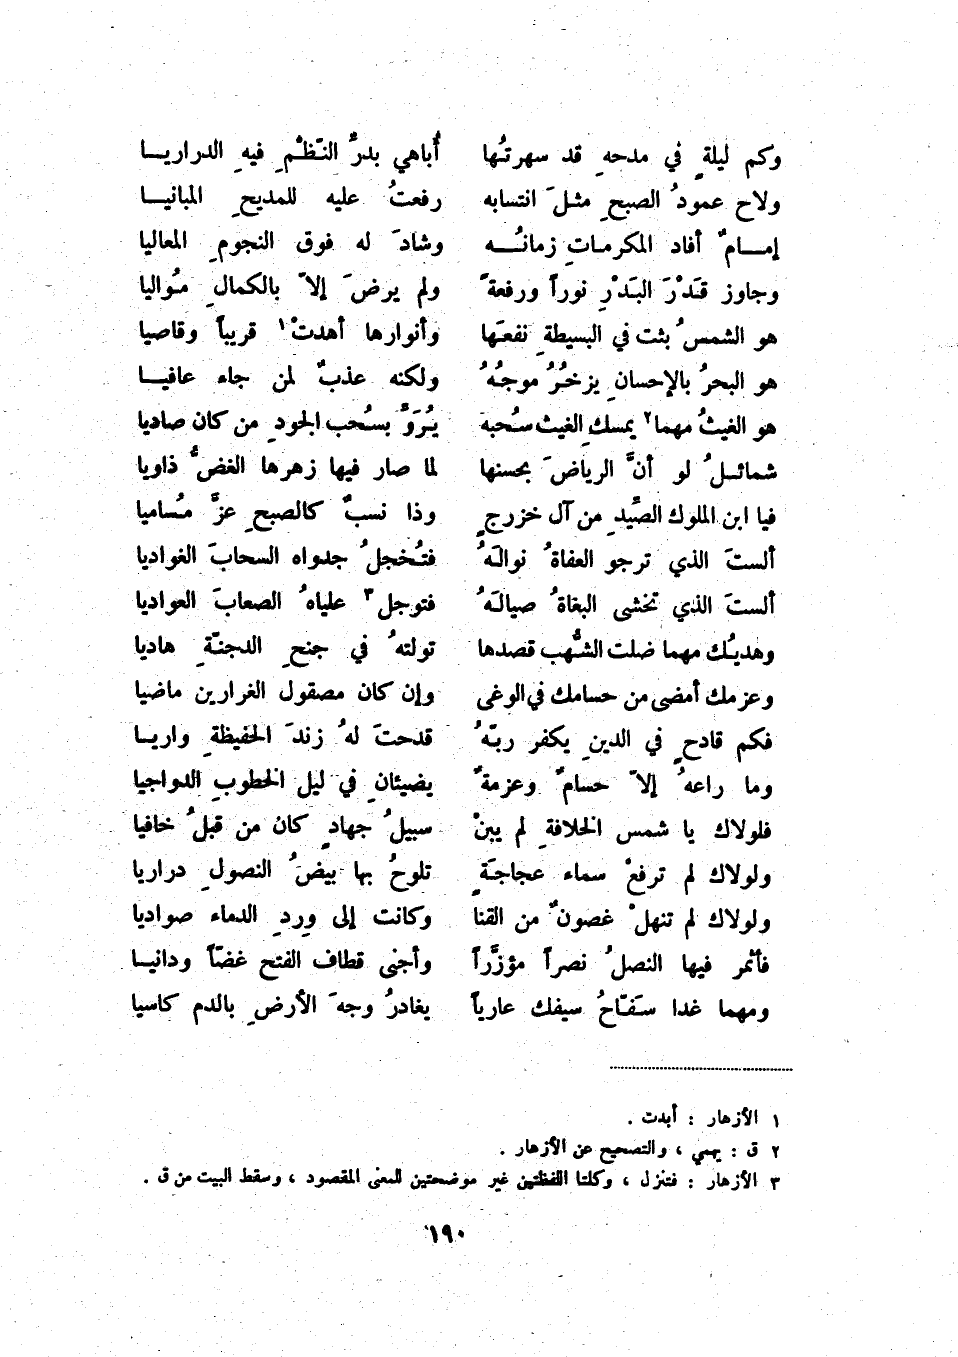 وكم ليلةٍ في مدحهِ قد سهرتُها أُباهي بدرِّ النّظْمِ فيهِ الدراريـا
ولاح عمودُ الصبحِ مثلَ انتسابه رفعتُ عليه للمديحِ المبانيـا
إمـامٌ أفاد المكرمـاتِ زمانُـه وشادَ له فوق النجومِ المعاليا
وجاوز قَدْرَ البَدْرِ نوراً ورفعةً ولم يرضَ إلاّ بالكمالِ مُواليا
هو الشمسُ بثت في البسيطةِ نفعَها وأنوارها أهدتْ١ قريباً وقاصيا
هو البحرُ بالإحسانِ يزخُرُ موجُهُ ولكنه عذبٌ لمن جاء عافيـا
هو الغيثُ مهما٢ يمسكِ الغيث سُحبه يُرَوِّ بسُحب الجودِ من كان صاديا
شمائلُ لو أنَّ الرياضَ بحسنها لما صار فيها زهرها الغضُّ ذاويا
فيا ابن الملوك الصِّيدِ من آل خزرجٍ وذا نسبٌ كالصبحِ عزَّ مُساميا
ألستَ الذي ترجو العفاةُ نوالَهُ فتُخجلُ جدواه السحابَ الغواديا
ألستَ الذي تخشى البغاةُ صيالَهُ فتوجل٣ علياهُ الصعابَ العواديا
وهديُك مهما ضلت الشُّهب قصدها تولتهُ في جنحِ الدجنّةِ هاديا
وعزمك أمضى من حسامك في الوغى وإن كان مصقول الغرارين ماضيا
فكم قادحٍ في الدينِ يكفر ربّهُ قدحتَ لهُ زندَ الحفيظةِ واريـا
وما راعهُ إلاّ حسامٌ وعزمةٌ يضيئانِ في ليل الخطوبِ الدواجيا
فلولاك يا شمس الخلافةِ لم يبنْ سبيلُ جهادٍ كان من قبلُ خافيا
ولولاك لم ترفعْ سماء عجاجةٍ تلوحُ بها بيضُ النصولِ دراريا
ولولاك لم تنهلْ غصونٌ من القنا وكانت إلى وِردِ الدماء صواديا
فأثمر فيها النصلُ نصراً مؤزَّراً وأجنى قطاف الفتح غضّاً ودانيـا
ومهما غدا سَفّاحُ سيفك عارياً يغادرُ وجهَ الأرضِ بالدم كاسيا
١ الأزهار : أبدت .
٢ ق : يهمي ، والتصحيح عن الأزهار .
٣ الأزهار : فتنزل ، وكلتا اللفظتين غير موضحتين للمعنى المقصود ، وسقط البيت من ق .
١٩٠